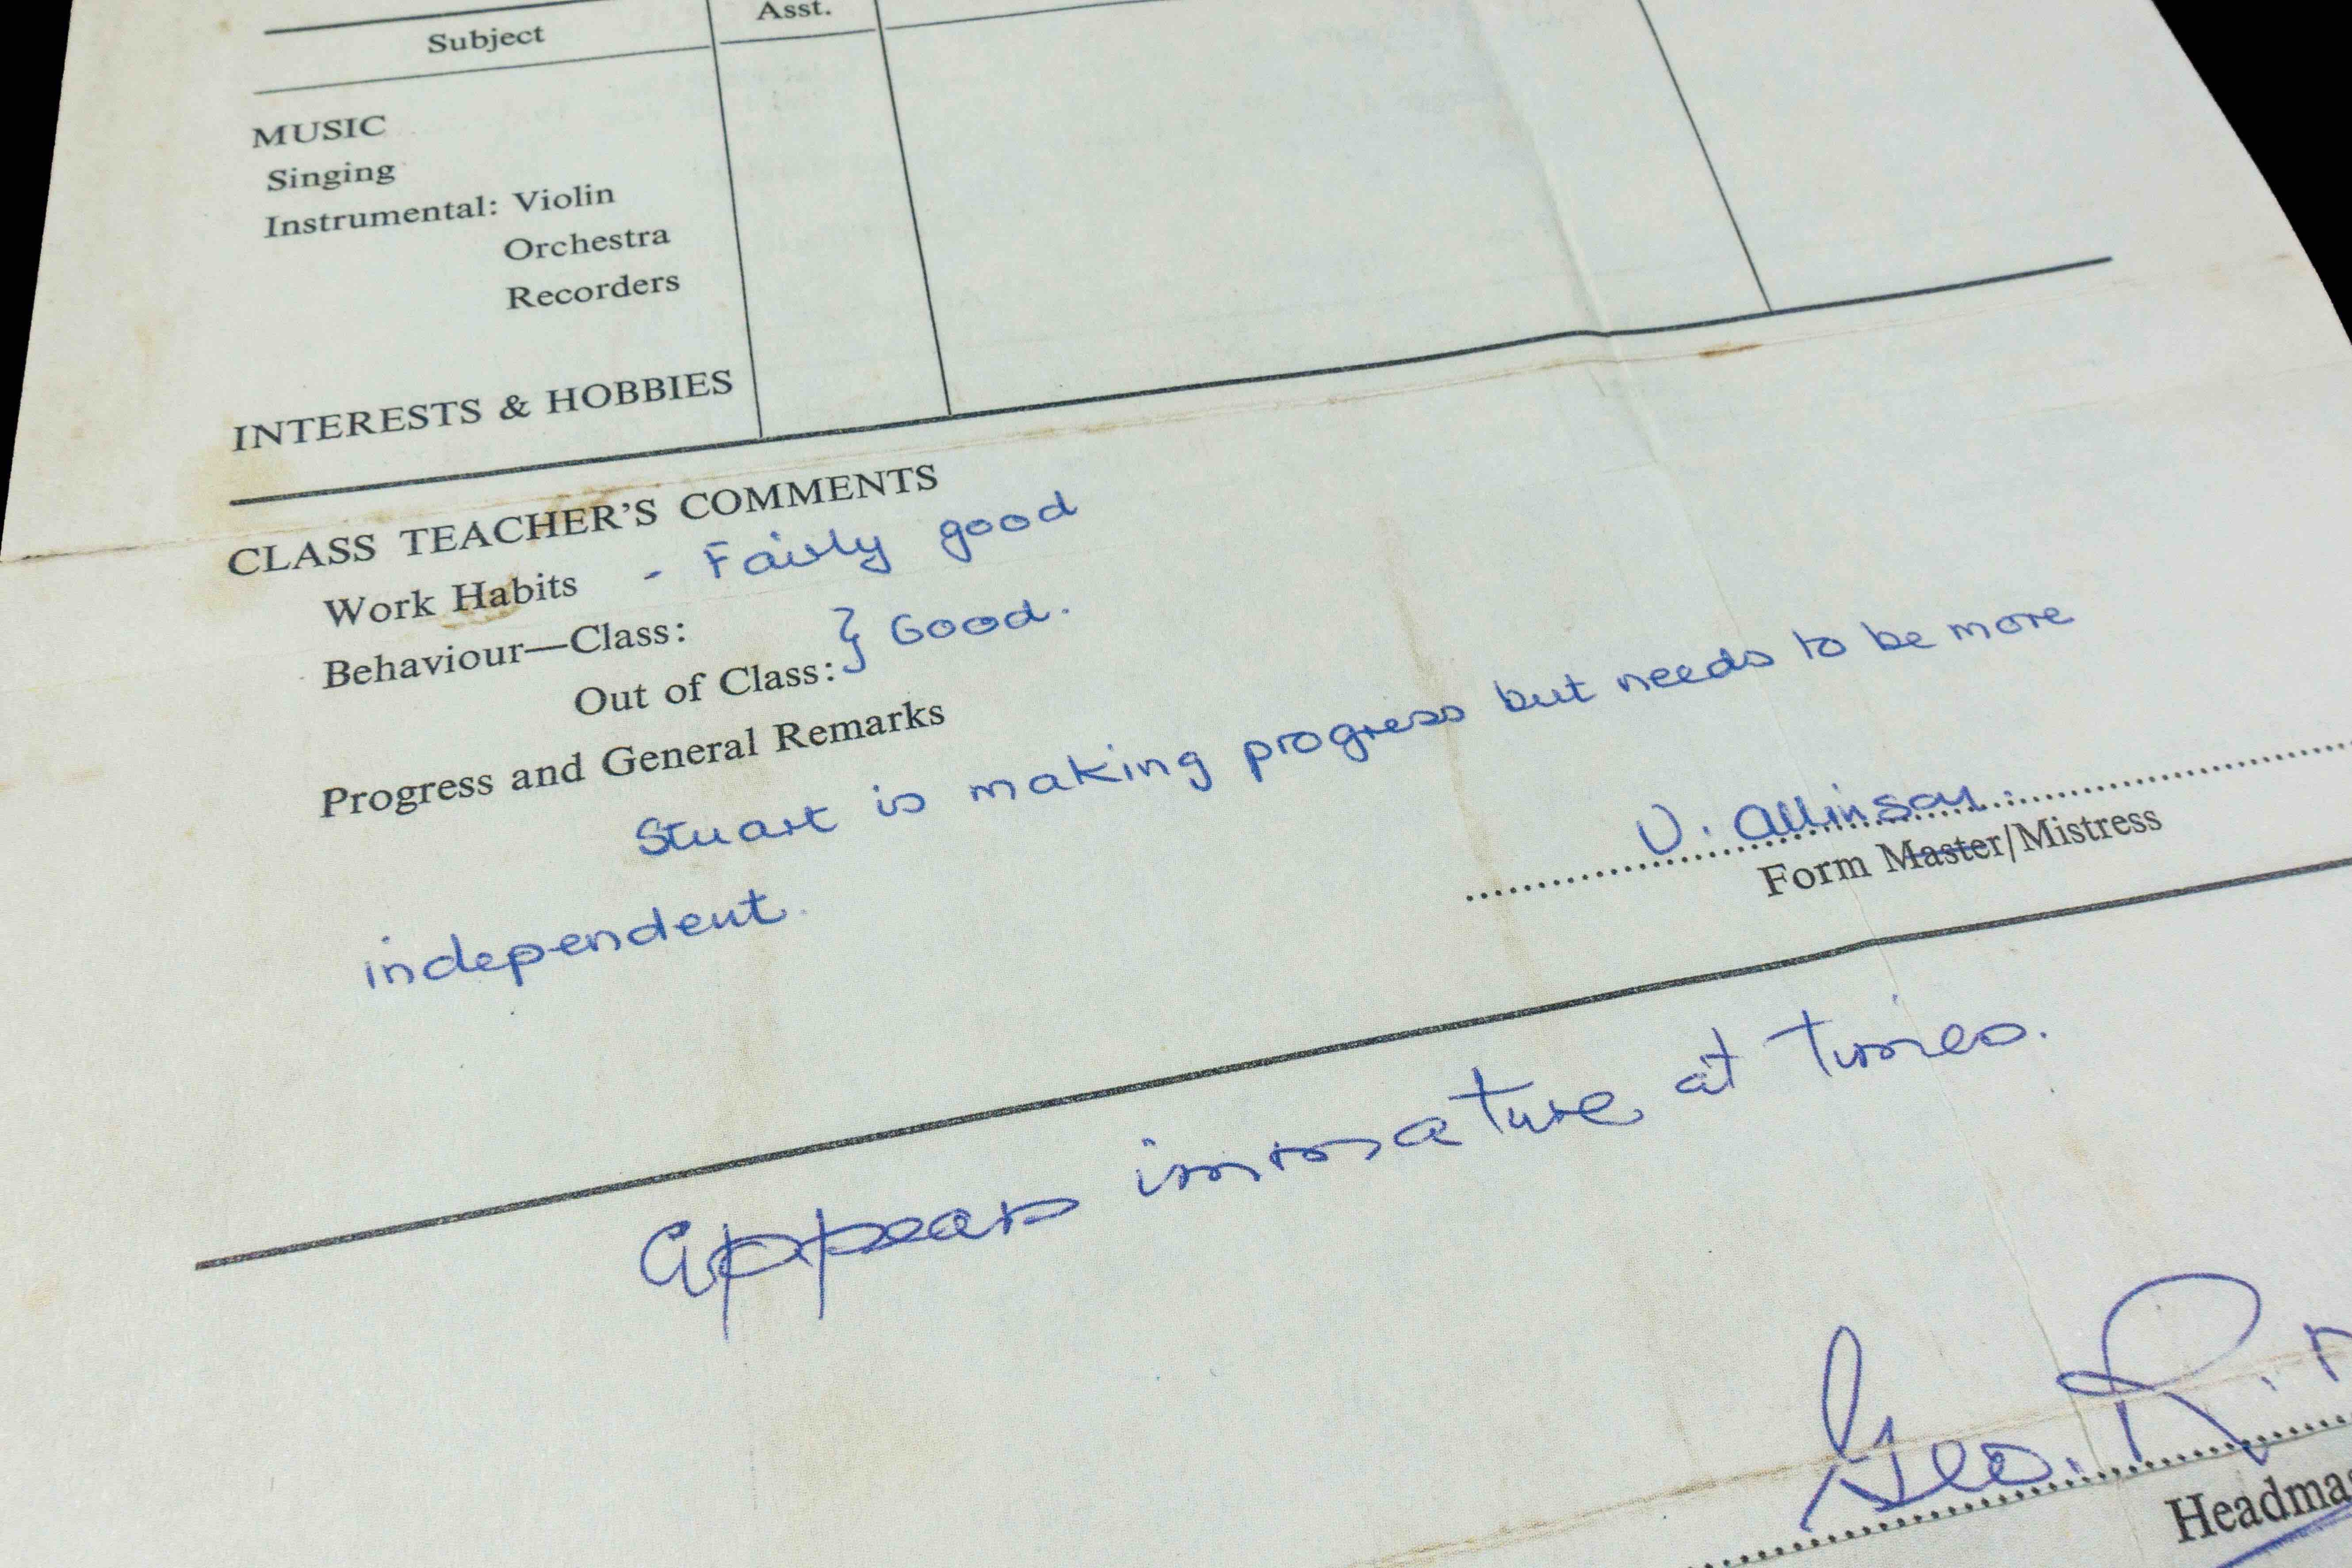 Subject Asst.
MUSIC
Singing
Instrumental: Violin
Orchestra
Recorders
INTERESTS & HOBBIES
CLASS TEACHER'S COMMENTS
Work Habits - Fairly good
Behaviour—Class:
Out of Class: } Good.
Progress and General Remarks
Stuart is making progress but needs to be more
independent.
V. Allinson.
Form Master/Mistress
Appears immature at times.
Geo. R.
Headmas